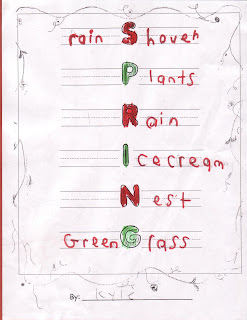 rain Shoveh
Plants
Rain
Icecream
Nest
Green Grass
By: Kyle